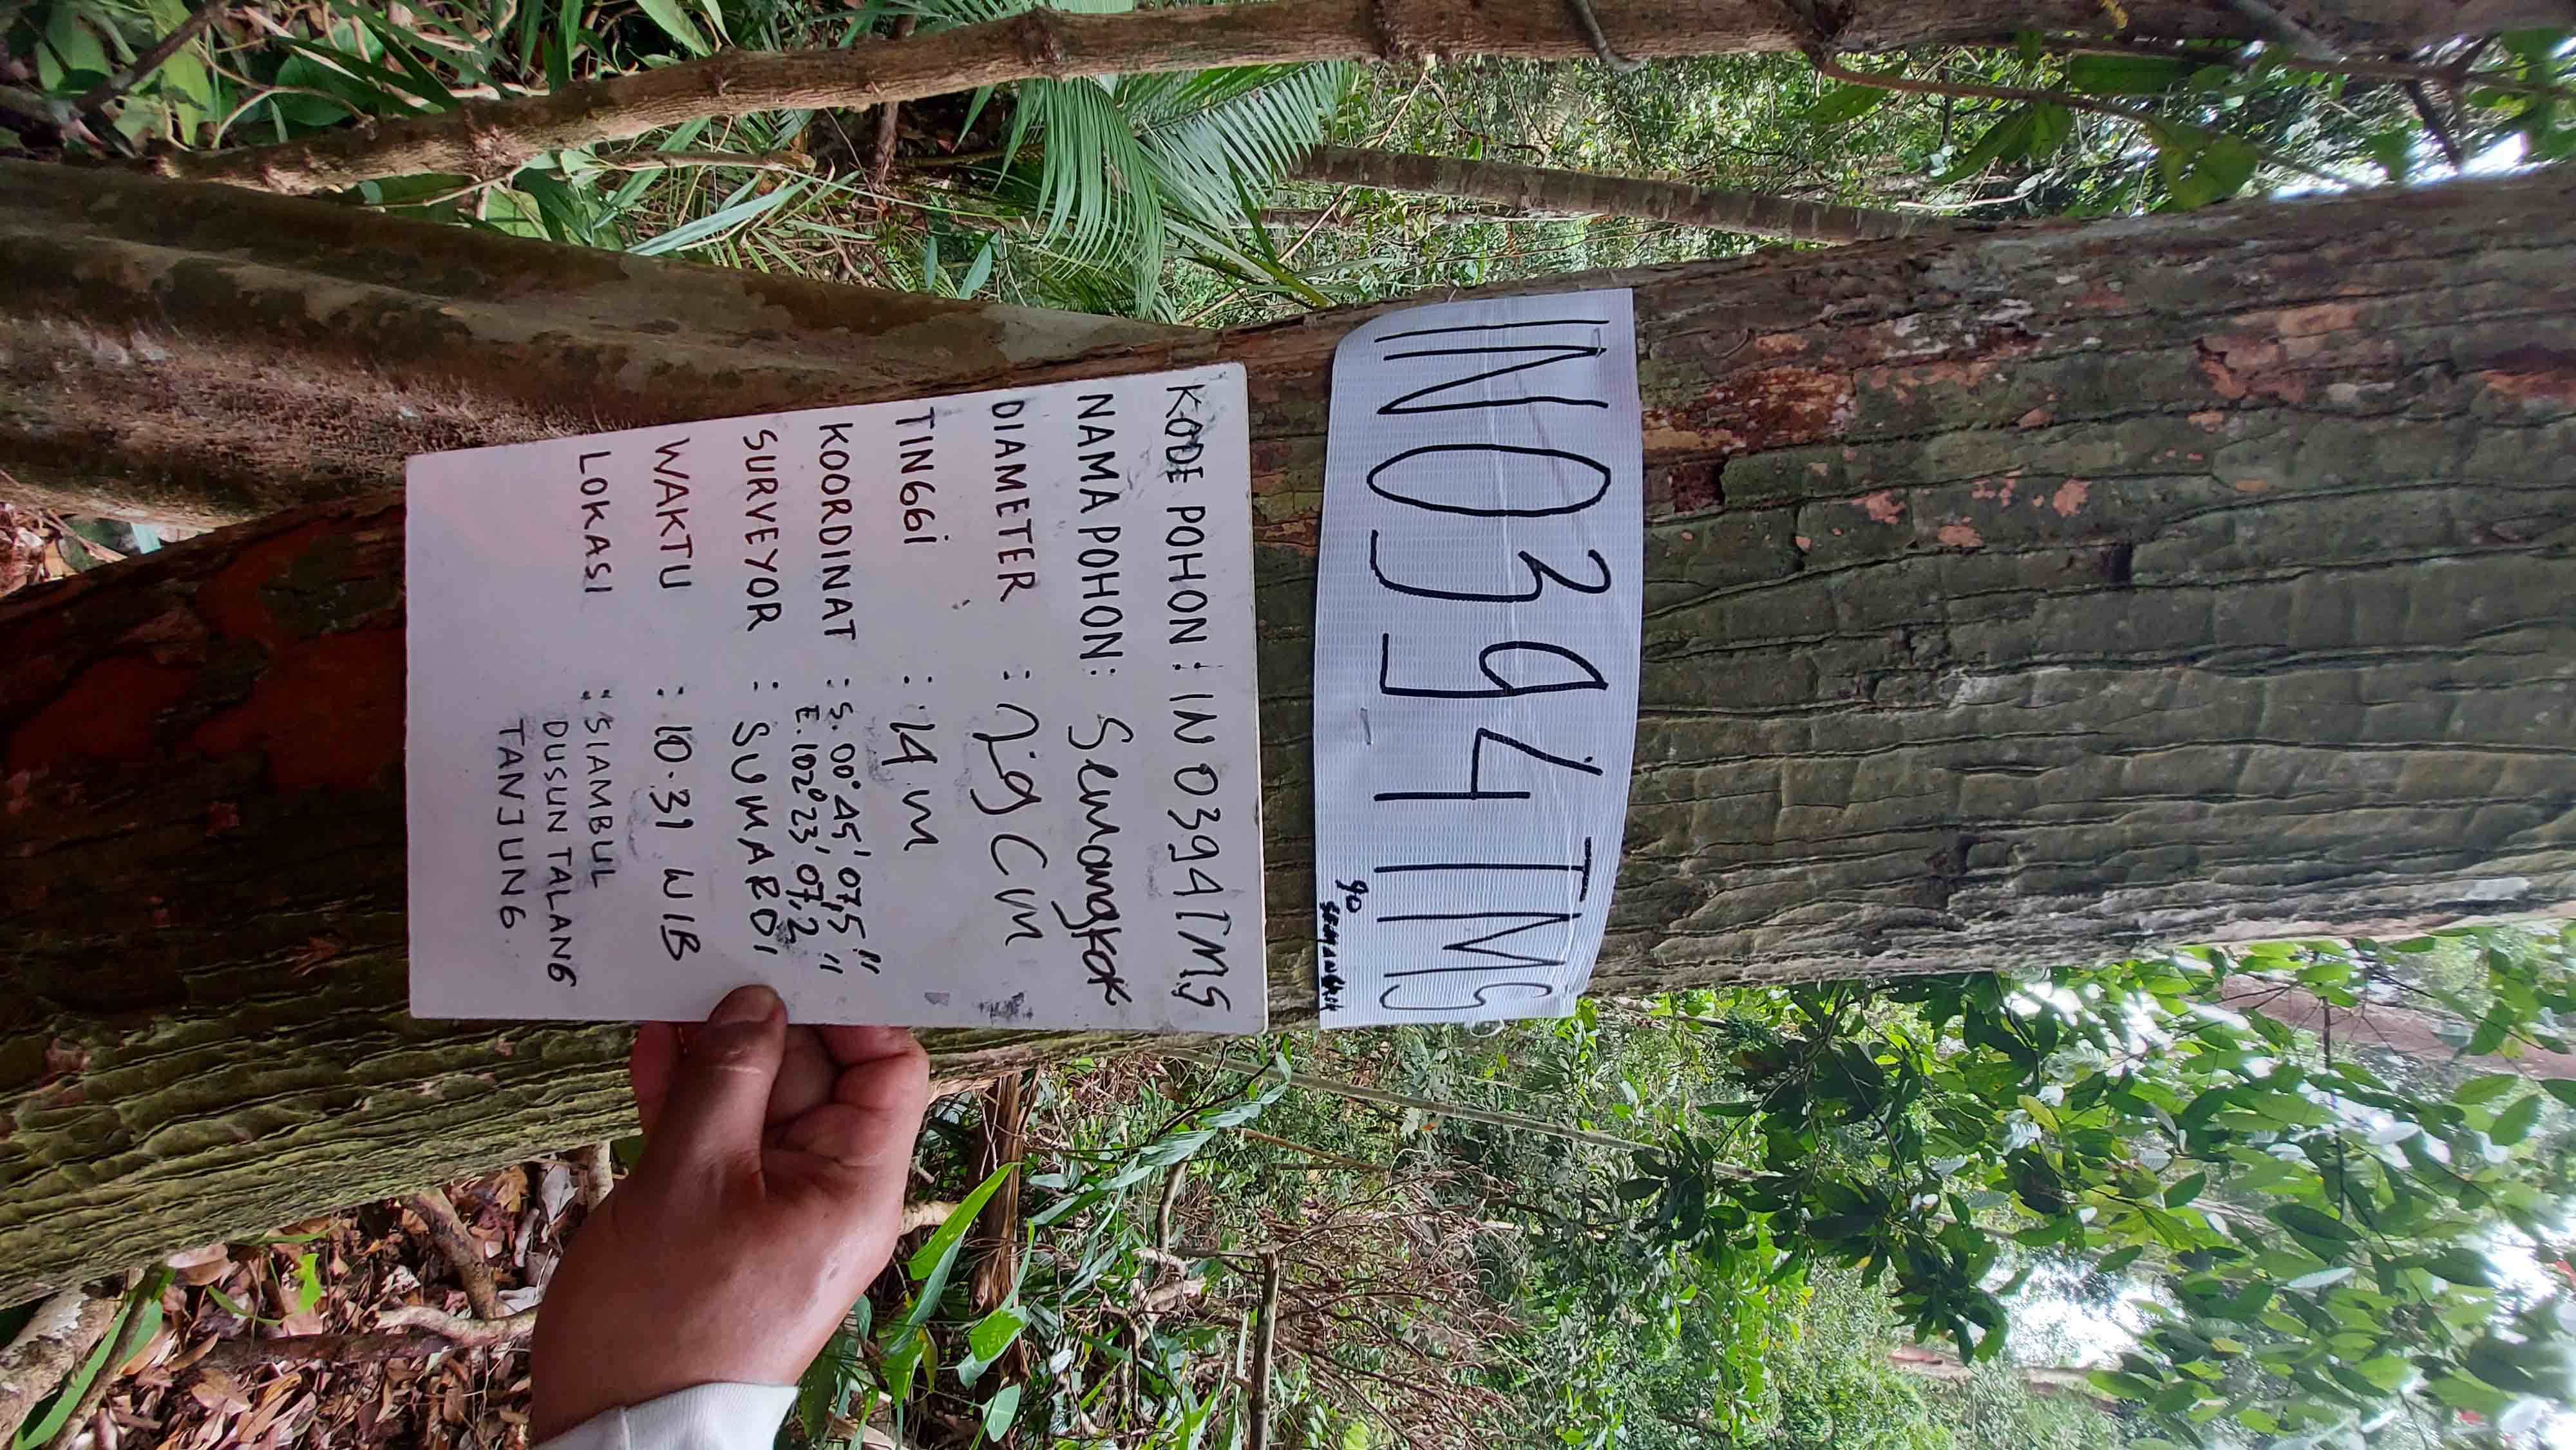 IN0394TMS
90
SEMANGKOK
KODE POHON : IN 0394TMS
NAMA POHON : Semangkok
DIAMETER : 29 Cm
TINGGi : 14 m
KOORDINAT : S. 00° 45' 07,5"
E. 102° 23' 07,2"
SURVEYOR : SUMARDI
WAKTU : 10.31 WIB
LOKASI : SIAMBUL
DUSUN TALANG
TANJUNG